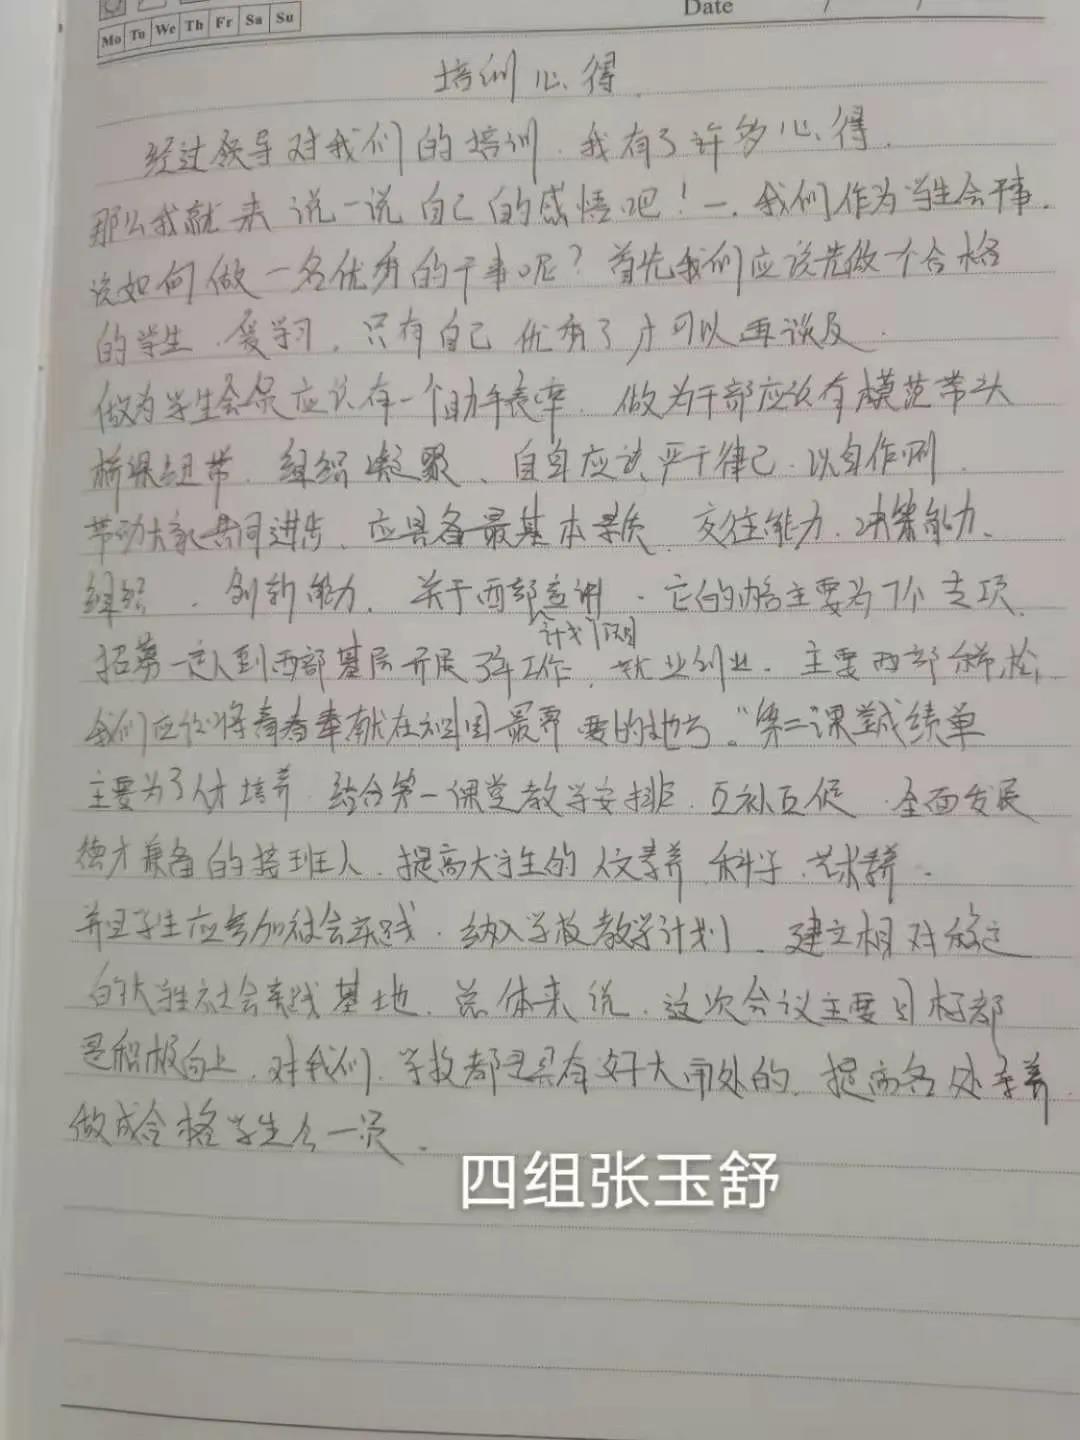 Mo Tu We Th Fr Sa Su
Date / /
培训心得
经过领导对我们的培训.我有了许多心得.
那么我就来说一说自己的感悟吧!一.我们作为学生会干事.
该如何做一名优秀的干事呢?首先我们应该先做一个合格
的学生.爱学习.只有自己优秀了才可以再谈及.
做为学生会 应该有一个 表率.做为干部应该有模范带头
桥梁纽带.组织凝聚、自身应该严于律己.以身作则.
带动大家共同进步.应具备最基本素质.交往能力.决策能力、
组织 .创新能力.关于西部 .它的内容主要为7个专项.
计划
招募一定人到西部基层开展 工作.就业创业.主要西部
我们应该将青春奉献在祖国最需要的地方。"第二课堂成绩单
主要为了人才培养.结合第一课堂教学安排.互补互促.全面发展
德才兼备的接班人.提高大学生的人文素养.科学.艺术素养.
并且学生应参加社会实践.纳入学校教学计划.建立相对稳定
的大学生社会实践基地.总体来说.这次会议主要目标都
是积极向上.对我们.学校都是具有好大用处的.提高各处素养.
做成合格学生 一员.
四组张玉舒